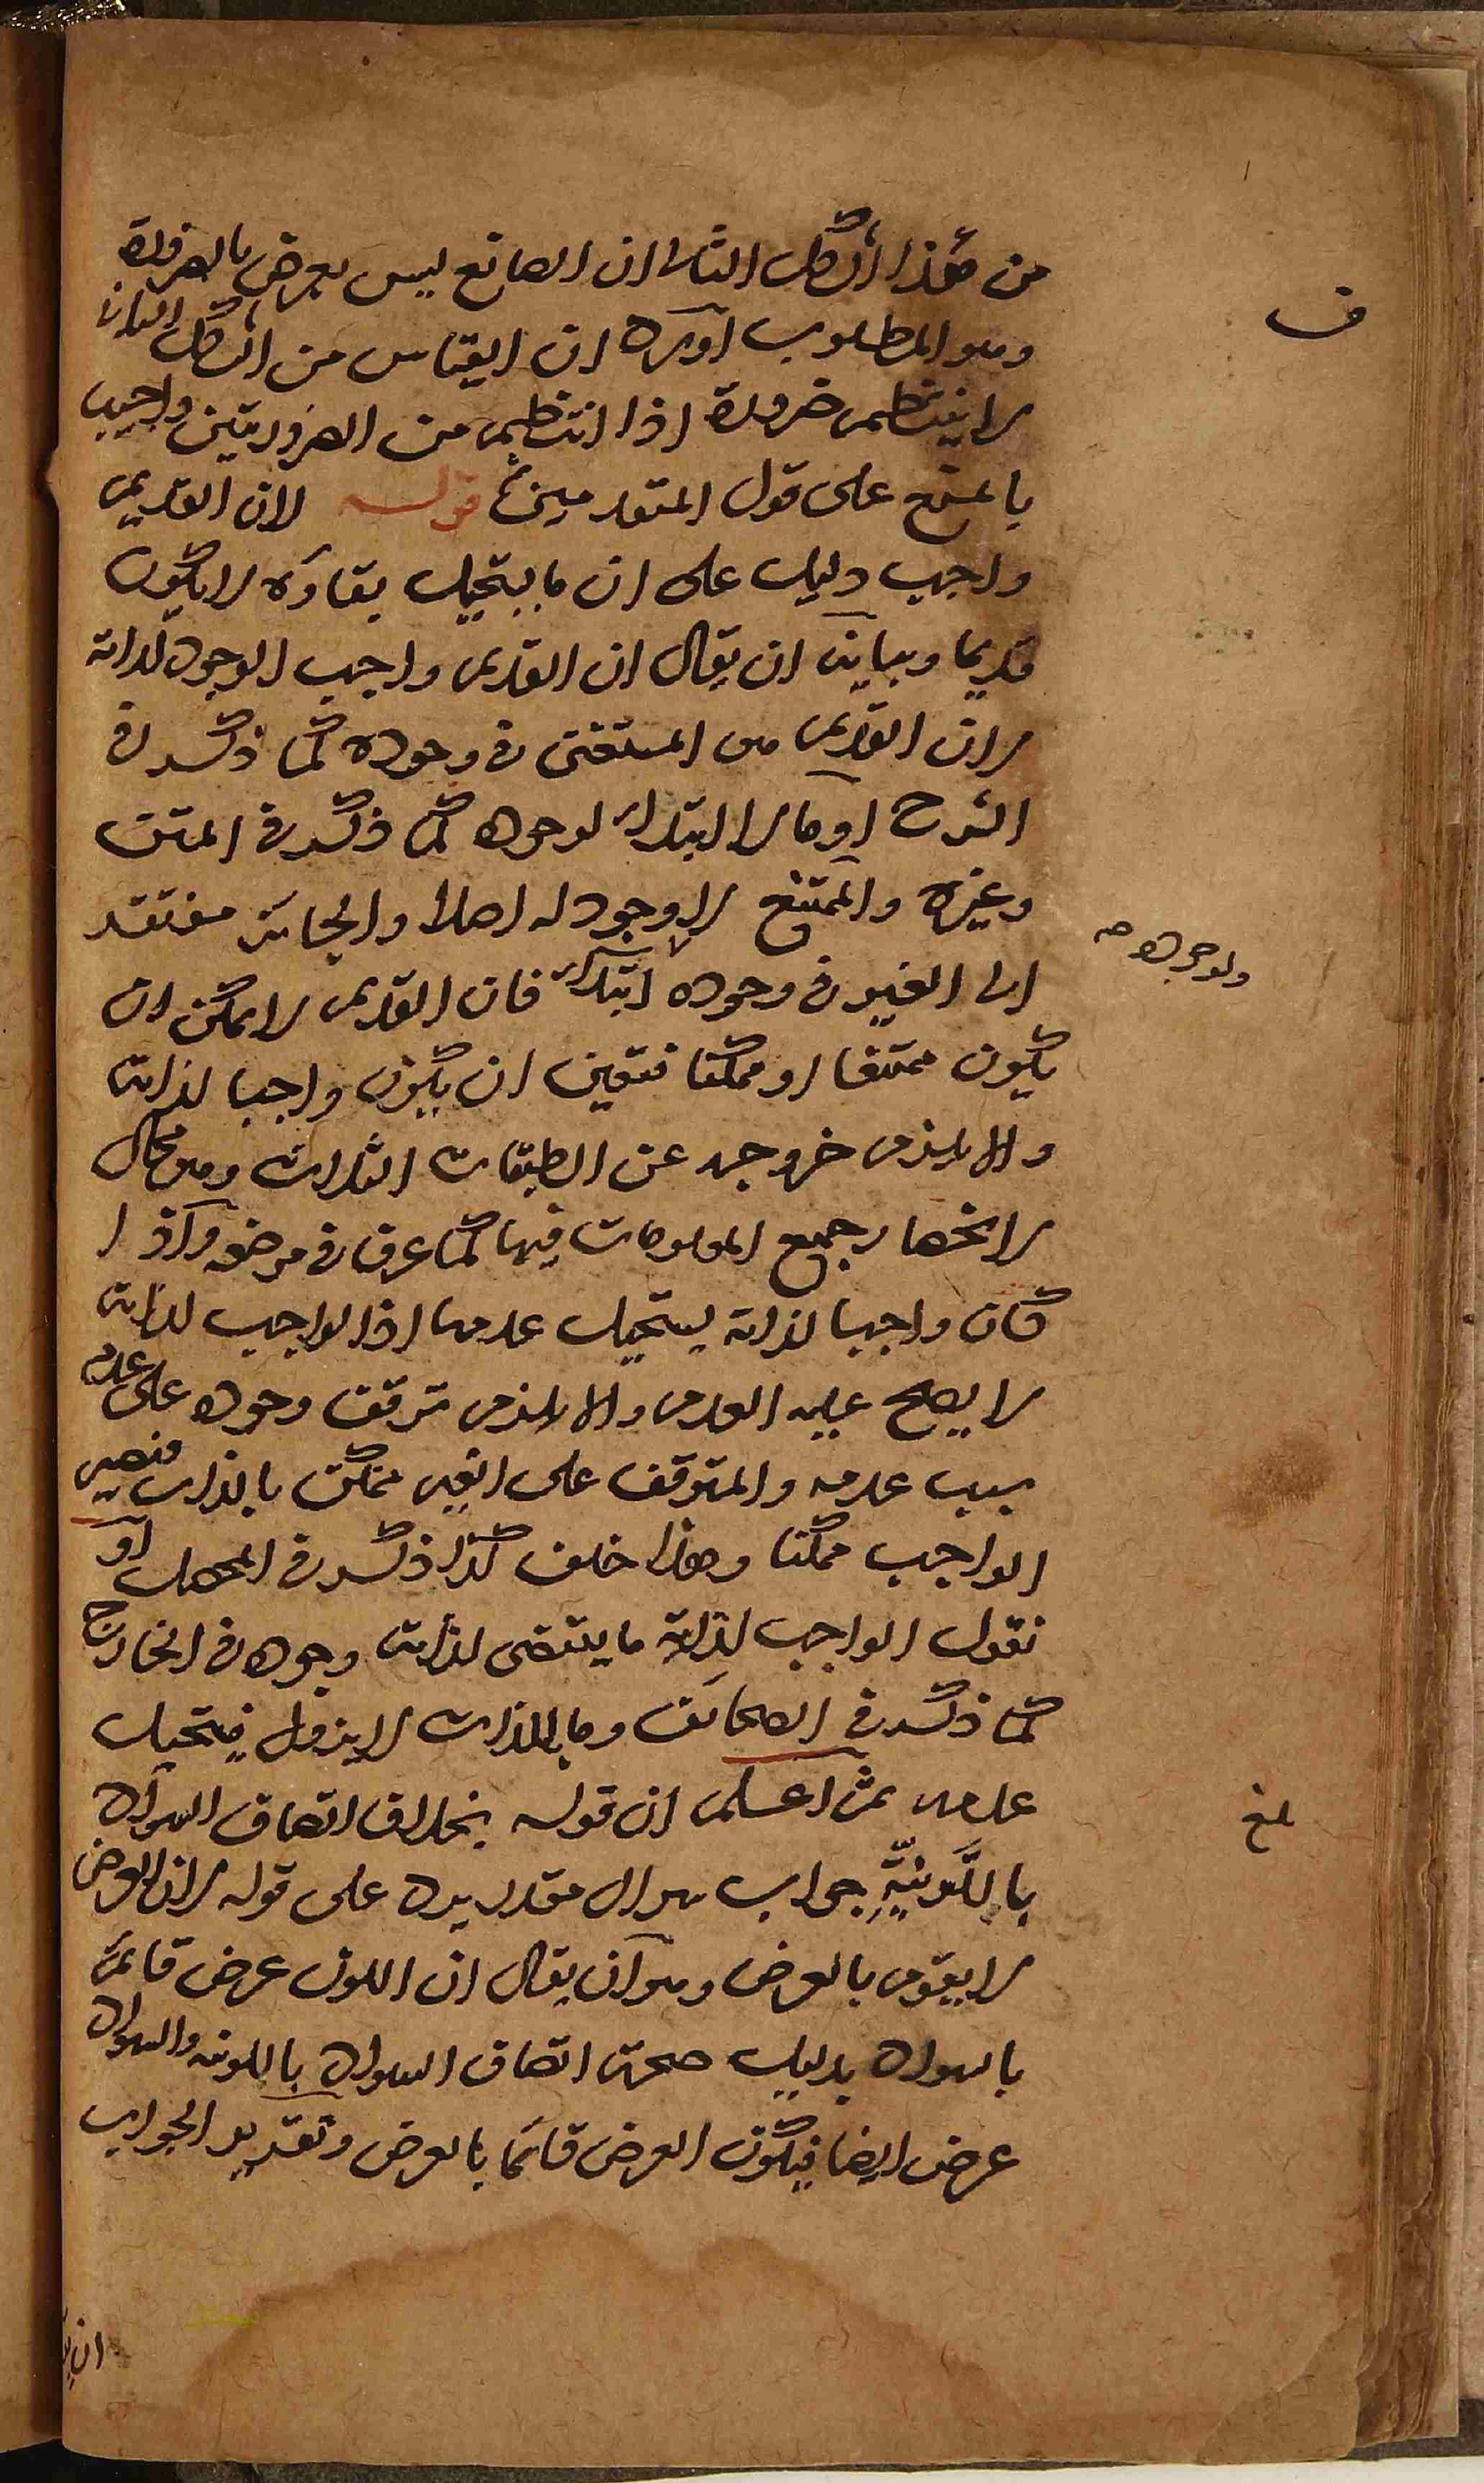 من هذا الشكل الثانى ان الصانع ليس بعرض بالضرورة
وهو المطلوب اورد ان القياس من الشكل الثانى
لا ينتظم ضرورة اذا انتظم من الضروريتين واجيب
بالمنع على قول المتقدمين قوله لان القديم
واجب دليل على ان ما يستحيل بقاؤه لا يكون
قديما وبيانه ان يقال ان القديم واجب الوجود لذاته
لان القديم هو المستغنى فى وجوده كما ذكر فى
الشرح او ما لا ابتداء لوجوده كما ذكر فى المتن
وغيره والممتنع لا وجود له اصلا والجائز مفتقد
الى الغير فى وجوده ابتداء فان القديم لا يمكن ان
ولوجوده صح
يكون ممتنعا او ممكنا فتعين ان يكون واجبا لذاته
والا يلزم خروجه عن الطبقات الثلاث وهو محال
لانحصار جميع المعلومات فيها كما عرف فى موضعه واذا
كان واجبا لذاته يستحيل عدمه اذ الواجب لذاته
لا يصح عليه العدم والا يلزم توقف وجوده على عدم
سبب عدمه والمتوقف على الغير ممكن بالذات فيصير
الواجب ممكنا وهذا خلف كذا ذكر فى المحصل او
نقول الواجب لذاته ما يقتضى لذاته وجوده فى الخارج
كما ذكر فى الصحائف وما بالذات لا يزول فيستحيل
عدمه ثم اعلم ان قوله بخلاف اتصاف السواد
باللونية جواب سوال مقدر يرد على قوله لان العرض
لا يقوم بالعرض وهو ان يقال ان اللون عرض قائم
بالسواد بدليل صحة اتصاف السواد باللونية والسواد
عرض ايضا فيكون العرض قائما بالعرض وتقدير الجواب